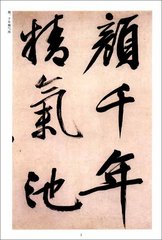 顏千年
精氣池